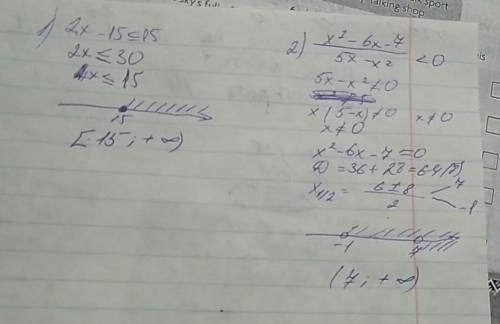 1) 2x - 15 ≤ 15
2x ≤ 30
x ≤ 15
15
[-15; +∞)
2) x² - 6x - 7 / 5x - x² < 0
5x - x² ≠ 0
x(5-x) ≠ 0 x ≠ 0
x ≠ 0
x² - 6x - 7 = 0
D = 36 + 28 = 64 (8)
x1/2 = 6 ± 8 / 2 7
-1
-1 7
(7; +∞)
talking shop